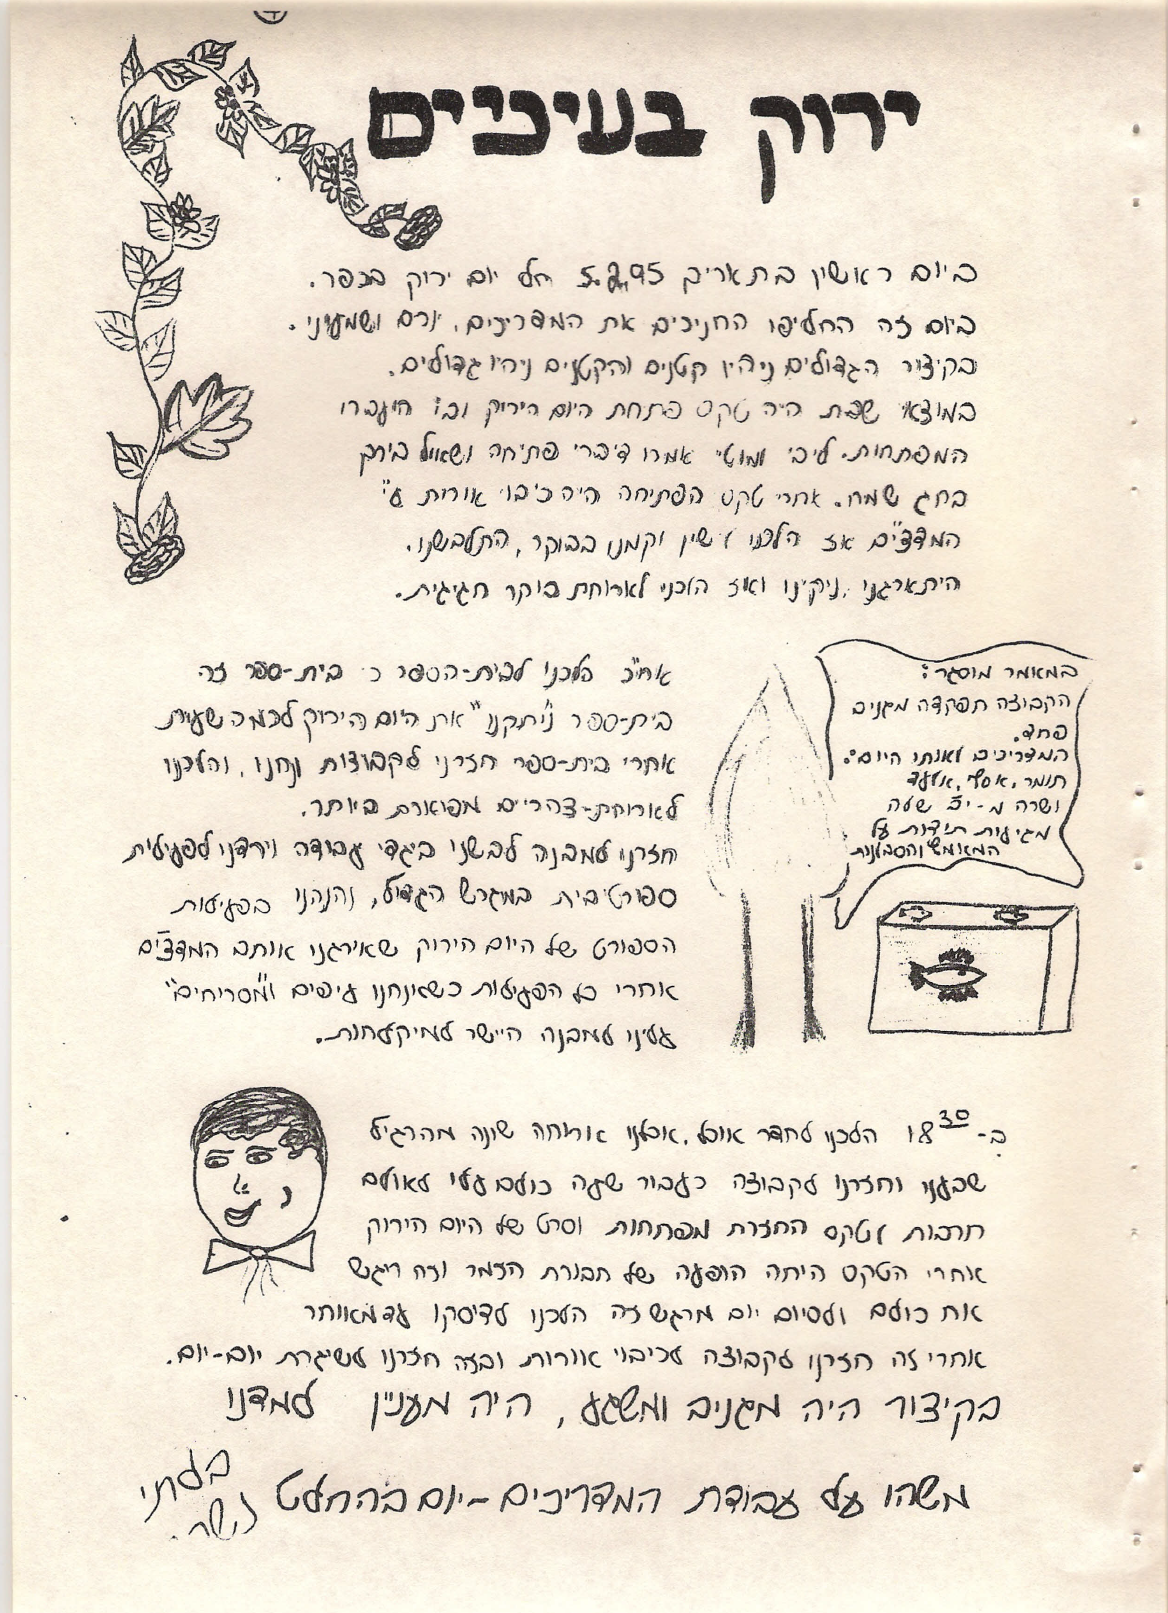 ירוק בעיניים
ביום ראשון בתאריך 5.2.95 חל יום ירוק בכפר.
ביום זה החליפו החניכים את המדריכים, יורם ושמעוני.
בקיצור הגדולים ניהיו קטנים והקטנים ניהיו גדולים.
במוצאי שבת היה טקס פתחת היום הירוק ובו היעברו
המפתחות. ליבי ומוטי אמרו דיברי פתיחה ושאול בירך
בחג שמח. אחרי טקס הפתיחה היה כיבוי אורות ע"י
המדצ"ים אז הלכנו לישון וקמנו בבוקר, התלבשנו.
היתארגנו, ניקינו ואז הלכנו לארוחת בוקר חגיגית.
במאמר מוסגר:
הקבוצה תפקדה מגנים
פחד.
המדריכים לאותו היום:
תומר, אסף, אלעד
ושרה מ-י"ב שלה
מגיעות תודות על
המאמץ והסבלנות
אח"כ הלכנו לבית-הספר כי בית-ספר זה
בית-ספר ו"ניתקנו" את היום הירוק לכמה שעות
אחרי בית-ספר חזרנו לקבוצות ונחנו, והלכנו
לארוחת-צהריים מפוארת ביותר.
חזרנו למבנה לבשנו ביגדי עבודה וירדנו לפעילות
ספורטיבית במגרש הגדול, ונהנהנו בפעילות
הספורט של היום הירוק שאירגנו אותם המדצ"ים
אחרי כל הפעילות כשאנחנו עיפים ו"מסריחים"
עלינו למבנה היישר למיקלחות.
ב-18³⁰ הלכנו לחדר אוכל, אכלנו ארוחה שונה מהרגיל
שבענו וחזרנו לקבוצה כעבור שעה כולם עלו לאולם
תרבות לטקס החזרת מפתחות וסרט של היום הירוק
אחרי הטקס היתה הופעה של חבורת הזמר וזה ריגש
את כולם ולסיום יום מרגש זה הלכנו לדיסקו עד מאוחר
אחרי זה חזרנו לקבוצה לכיבוי אורות ובזה חזרנו לשיגרת יום-יום.
בקיצור היה מגניב ומשגע, היה מעניין למדנו
משהו על עבודת המדריכים - יום בהחלט
בלתי